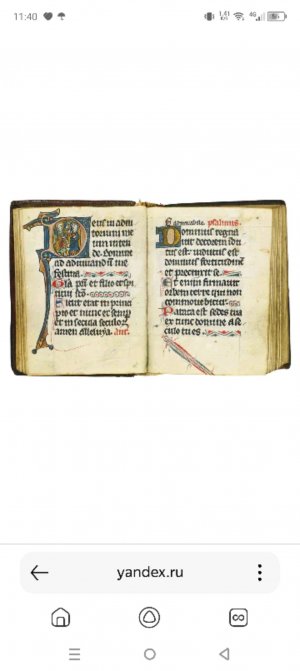 11:40
1,41
K/S
4G
56
Deus in adiu
torium me
um inten
de. Domine
ad adiuuandum me
festina.
Gloria patri et filio et spi
ritui sancto.
Sicut erat in princi
pio et nunc et semper
et in secula seculorum
amen alleluya. ant.
psalmus.
Dominus regna
uit decorem indu
tus est: indutus est
dominus fortitudinem
et precinxit se.
Et enim firmauit
orbem terre qui non
commouebitur.
Parata est sedes tua
ex tunc domine a se
culo tu es.
yandex.ru